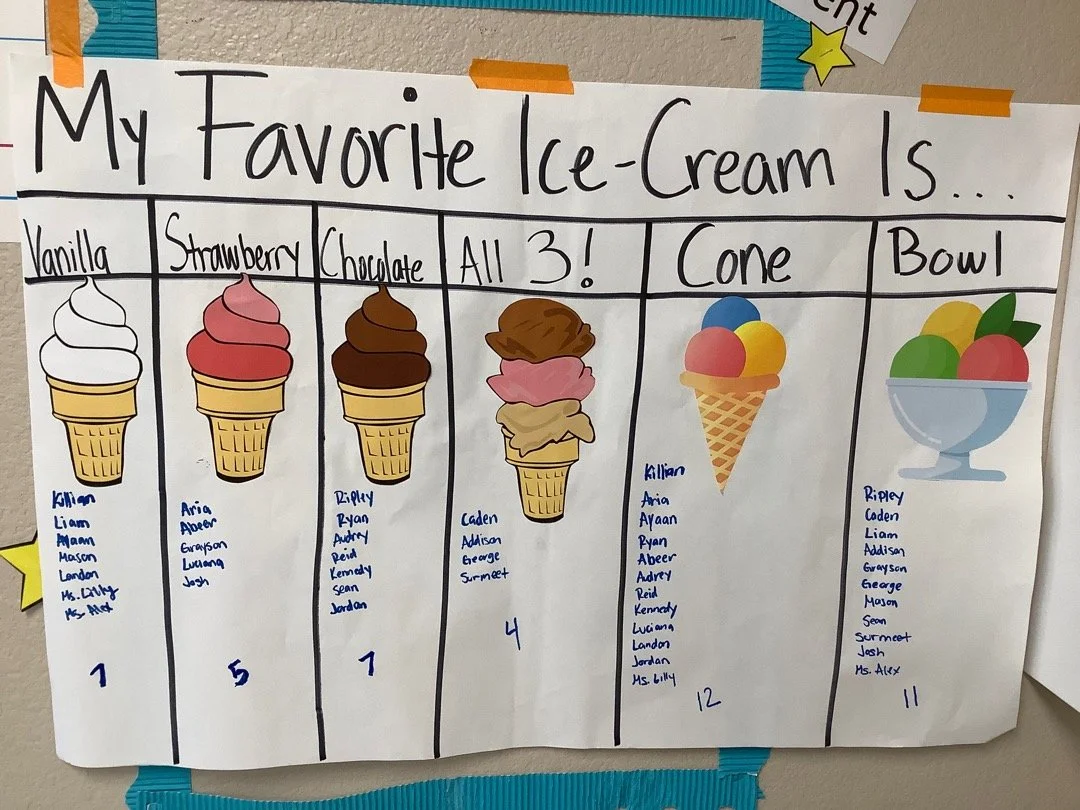 ent
My Favorite Ice-Cream Is...
Vanilla
Strawberry
Chocolate
All 3!
Cone
Bowl
Killian
Liam
Ayaan
Mason
Landon
Ms. Lilly
Ms. Alex
7
Aria
Abeer
Grayson
Luciana
Josh
5
Ripley
Ryan
Audrey
Reid
Kennedy
Sean
Jordan
7
Caden
Addison
George
Surmeet
4
Killian
Aria
Ayaan
Ryan
Abeer
Audrey
Reid
Kennedy
Luciana
Landon
Jordan
Ms. Lilly
12
Ripley
Caden
Liam
Addison
Grayson
George
Mason
Sean
Surmeet
Josh
Ms. Alex
11